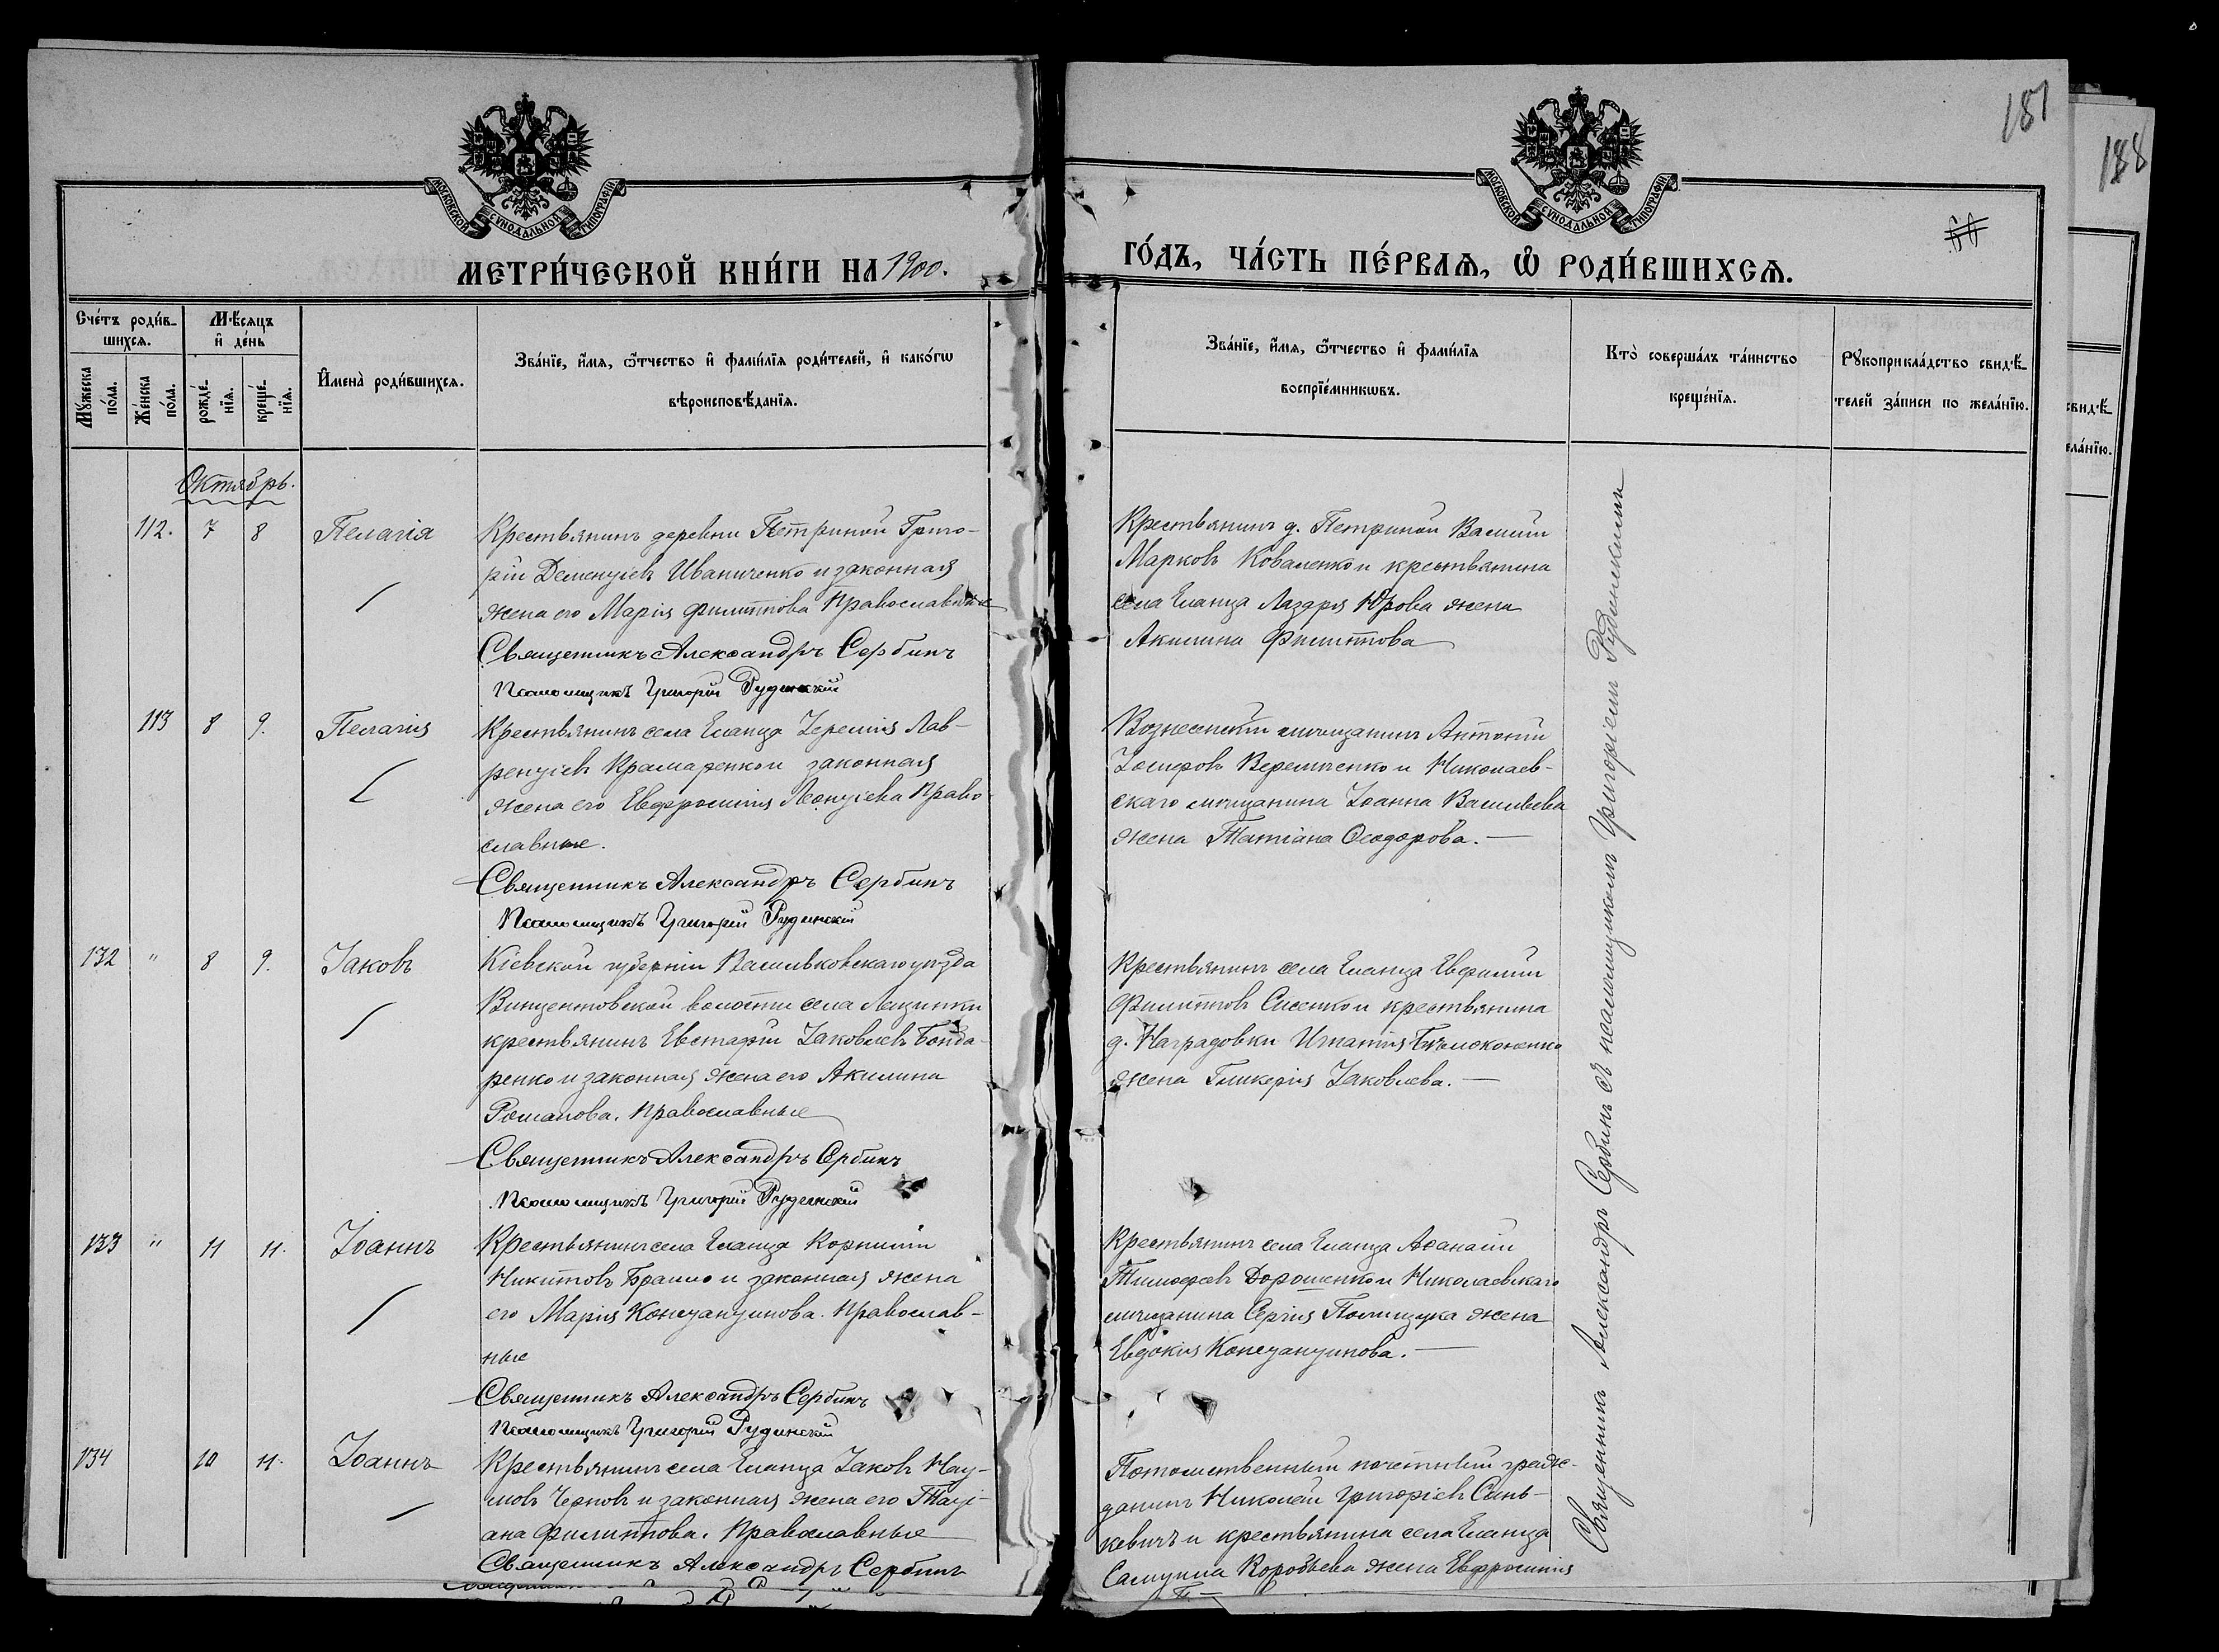 187
188
МОСКОВСКОЙ СѴНОДАЛЬНОЙ ТИПОГРАФІИ
МОСКОВСКОЙ СѴНОДАЛЬНОЙ ТИПОГРАФІИ
МЕТРИ́ЧЕСКОЙ КНИ́ГИ НА 1900.
ГО́ДЪ, ЧА́СТЬ ПЕ́РВАѦ, Ѡ҆ РОДИ́ВШИХСѦ.
Сче́тъ роди́в-
шихсѧ.
Мꙋ́жеска
по́ла.
Же́нска
по́ла.
Мѣ́сѧцъ
и҆ де́нь
рожде́-
нїѧ.
креще́-
нїѧ.
И҆мена̀ роди́вшихсѧ.
Зва́нїе, и҆́мѧ, ѻ҆́тчество и҆ фами́лїѧ роди́телей, и҆ како́гѡ
вѣроисповѣ́данїѧ.
Зва́нїе, и҆́мѧ, ѻ҆́тчество и҆ фами́лїѧ
воспрїе́мникѡвъ.
Кто̀ соверша́лъ та́инство
креще́нїѧ.
Рꙋкоприкла́дство свидѣ́-
телей за́писи по жела́нїю.
свидѣ́-
ела́нїю.
Октябрь.
112. 7 8 Пелагія
Крестьянинъ деревни Петриной Григо-
рій Дементіевъ Иваниченко и законная
жена его Марія Филиппова Православные
Священникъ Александръ Сербинъ
Псаломщикъ Григорій Рудинскій
Крестьянинъ д. Петриной Василій
Марковъ Коваленко и крестьянина
села Еланца Лазаря Юрова жена
Акилина Филиппова
113 8 9. Пелагія
Крестьянинъ села Еланца Іеремія Лав-
рентіевъ Крамаренко и законная
жена его Евфросинія Леонтіева Право-
славные.
Священникъ Александръ Сербинъ
Псаломщикъ Григорій Рудинскій
Вознесенскій мѣщанинъ Антоній
Іосифовъ Веремѣенко и Николаев-
скаго мѣщанина Іоанна Васильева
жена Татіана Ѳеодорова.
132 " 8 9. Іаковъ
Кіевской губерніи Васильковскаго уѣзда
Винцентовской волости села Лащинки
крестьянинъ Евстафій Іаковлевъ Бонда-
ренко и законная жена его Акилина
Романова. Православные
Священникъ Александръ Сербинъ
Псаломщикъ Григорій Рудинскій
Крестьянинъ села Еланца Евфимій
Филипповъ Сисенко и крестьянина
д. Наградовки Игнатія Бѣлоконенко
жена Гликерія Іаковлева.
133 " 11 11. Іоаннъ
Крестьянинъ села Еланца Корнилій
Никитовъ Брашло и законная жена
его Марія Константинова. Православ-
ные
Священникъ Александръ Сербинъ
Псаломщикъ Григорій Рудинскій
Крестьянинъ села Еланца Аѳанасій
Тимофеевъ Дорошенко и Николаевскаго
мѣщанина Сергія Полищука жена
Евдокія Константинова.
134 10 11. Іоаннъ
Крестьянинъ села Еланца Іаковъ Нау-
мовъ Черновъ и законная жена его Таті-
ана Филиппова. Православные
Священникъ Александръ Сербинъ
Потомственный почетный граж-
данинъ Николай Григоріевъ Синь-
кевичъ и крестьянина села Еланца
Самуила Коробьева жена Евфросинія
Священникъ Александръ Сербинъ съ псаломщикомъ Григоріемъ Рудинскимъ